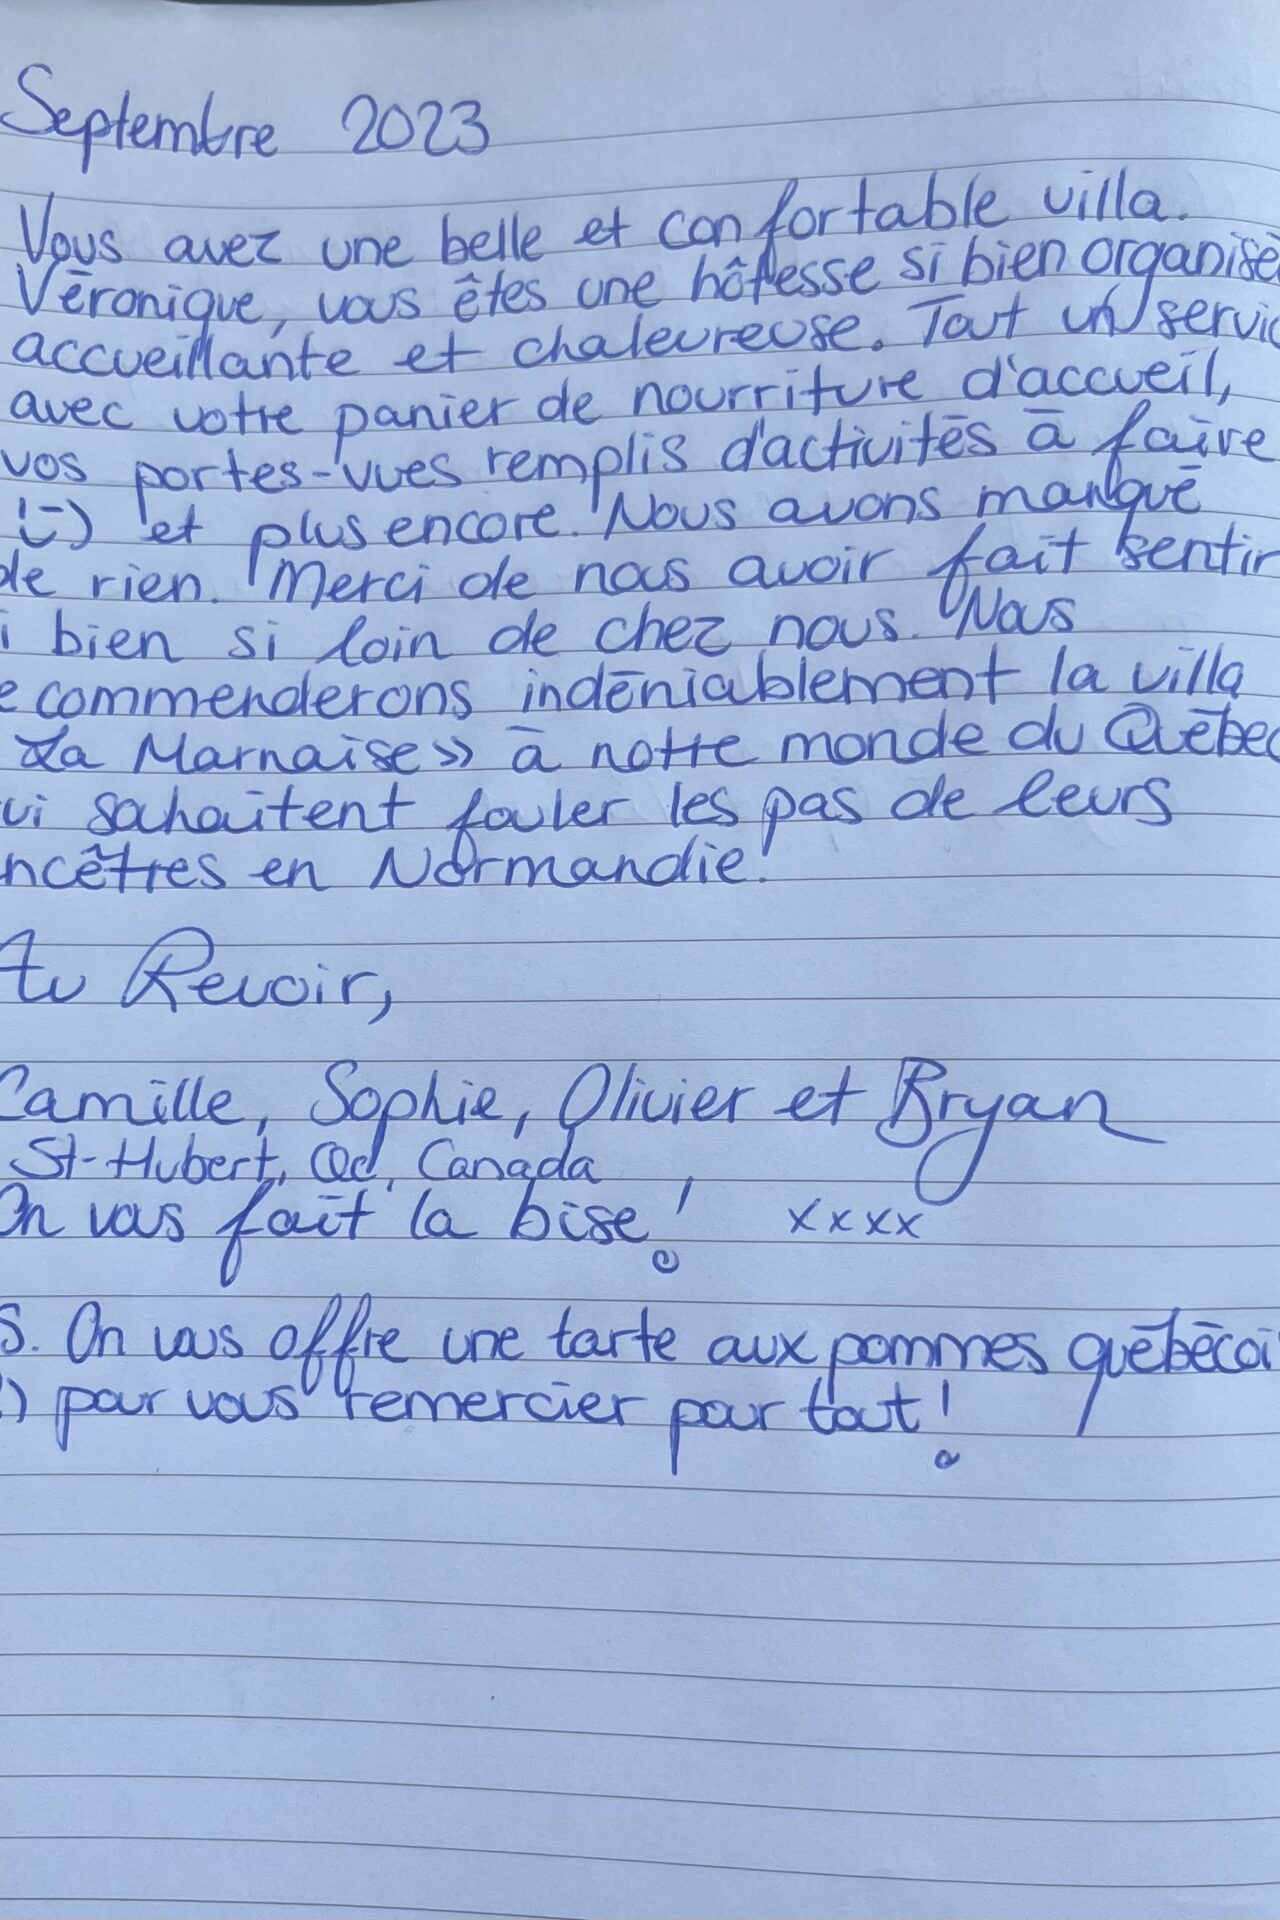 Septembre 2023
Vous avez une belle et confortable villa.
Véronique, vous êtes une hôtesse si bien organisé
accueillante et chaleureuse. Tout un servic
avec votre panier de nourriture d'accueil,
vos portes-vues remplis d'activités à faire
:-) et plus encore. Nous avons manqué
de rien. Merci de nous avoir fait sentir
i bien si loin de chez nous. Nous
ecommenderons indéniablement la villa
La Marnaise» à notre monde du Québec
ui sohaitent fouler les pas de leurs
ncêtres en Normandie!
Au Revoir,
Camille, Sophie, Olivier et Bryan
St-Hubert, Qc, Canada
On vous fait la bise! xxxx
S. On vous offre une tarte aux pommes québécoi
:) pour vous remercier pour tout!